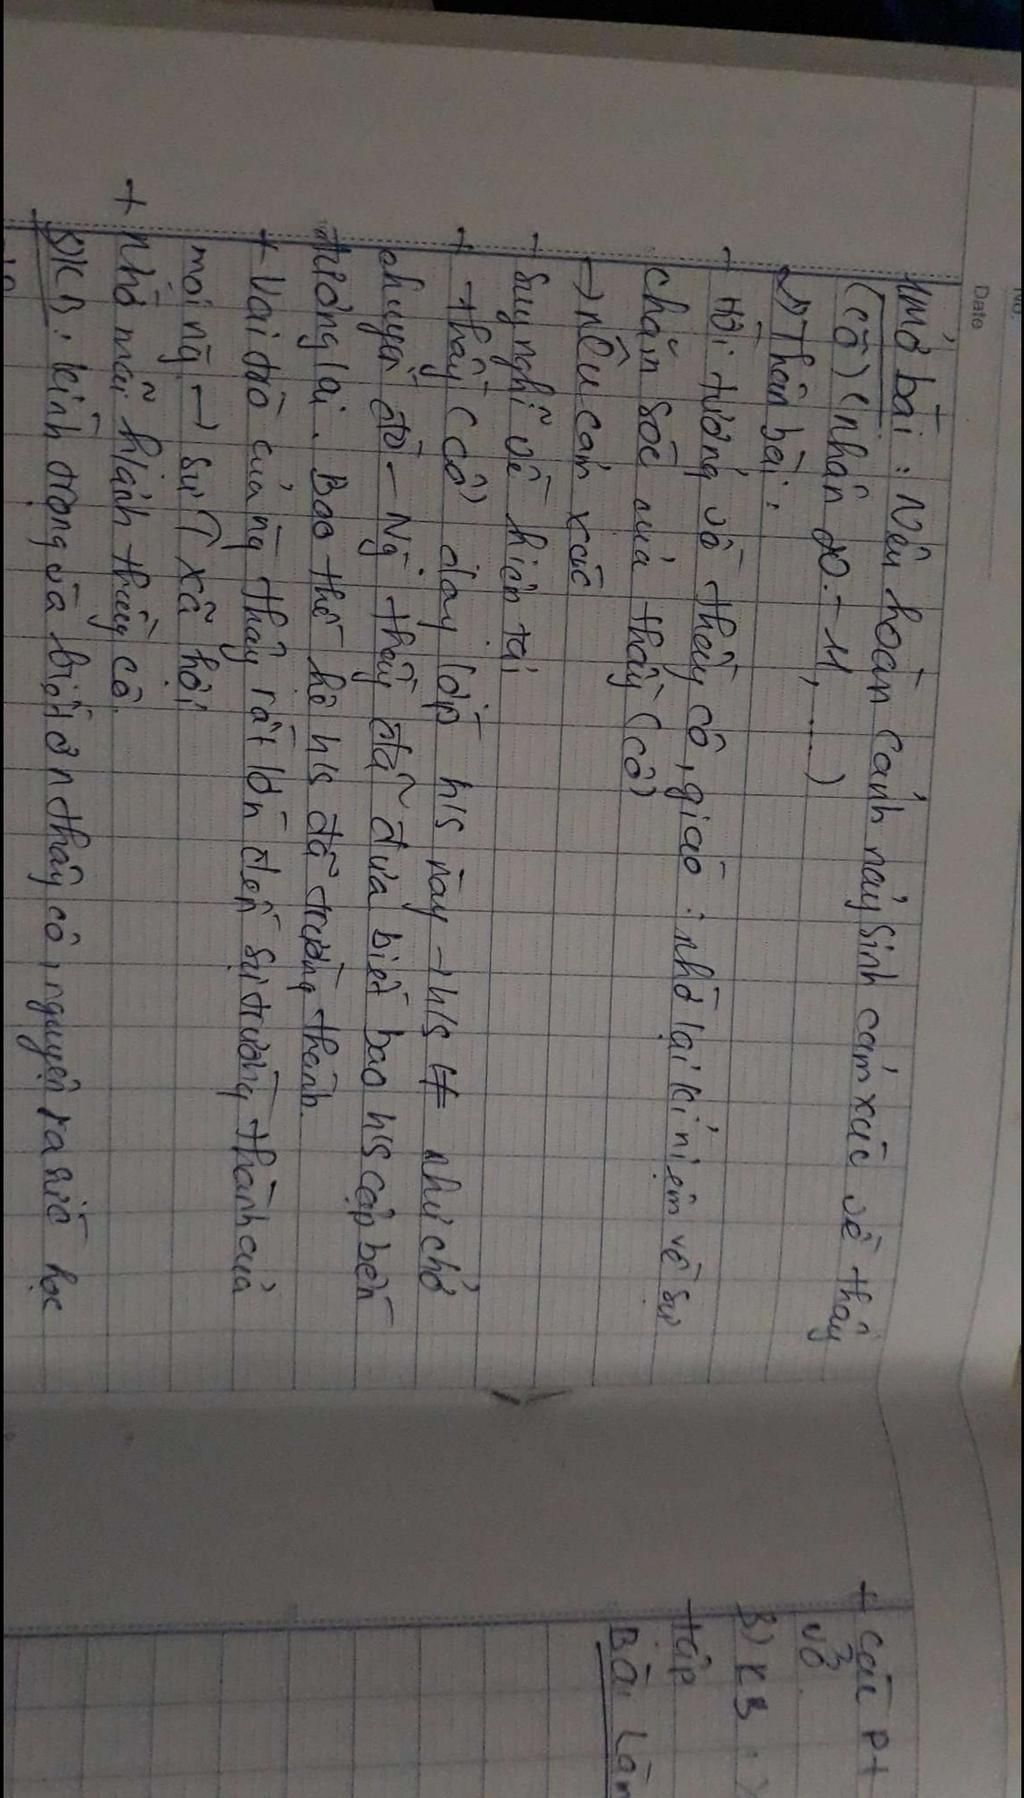 No.
Date
1) Mở bài: Nêu hoàn cảnh nảy sinh cảm xúc về thầy
(cô) (nhân 20-11,.....)
2) Thân bài:
- Hồi tưởng về thầy cô, giáo: nhớ lại kỉ niệm về sự
chăm sóc của thầy (cô)
→ nêu cảm xúc
- Suy nghĩ về hiện tại
+ thầy (cô) dạy lớp h/s này → h/s ≠ như chở
chuyến đò - Ng thầy đã đưa biết bao h/s cập bến
tương lai. Bao thế hệ h/s đã trưởng thành.
+ Vai trò của ng thầy rất lớn đến sự trưởng thành của
mọi ng → sự ↑ xã hội
+ nhớ mãi h/ảnh thầy cô.
3) KB: kính trọng và biết ơn thầy cô, nguyện ra sức học
+ các pt
vở
3) KB:
tập
Bài Làm